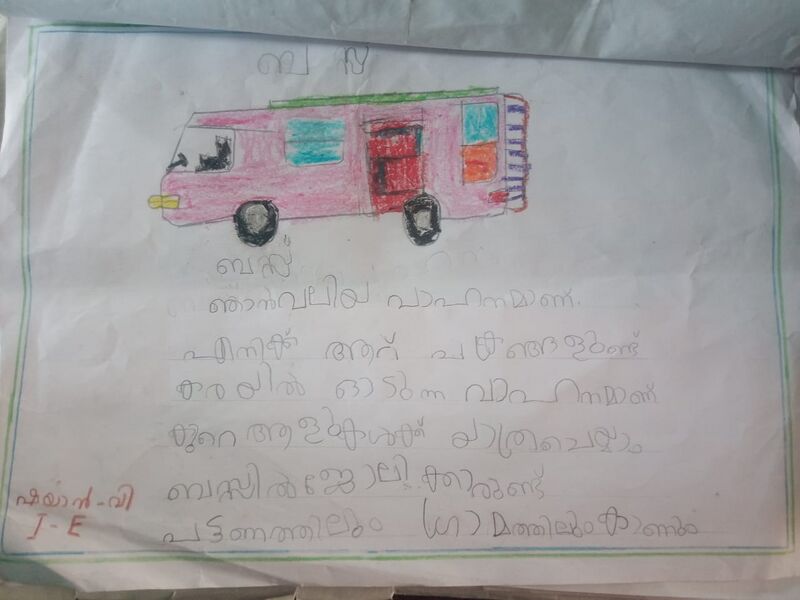 ബസ്സ്
ബസ്സ്
ഞാൻ വലിയ വാഹനമാണ്.
എനിക്ക് ആറ് ചക്രങ്ങളുണ്ട്
കരയിൽ ഓടുന്ന വാഹനമാണ്
കുറെ ആളുകൾക്ക് യാത്രചെയ്യാം
ബസ്സിൽ ജോലിക്കാരുണ്ട്
പട്ടണത്തിലും ഗ്രാമത്തിലും കാണും
ഷയാൻ - വി
I - E